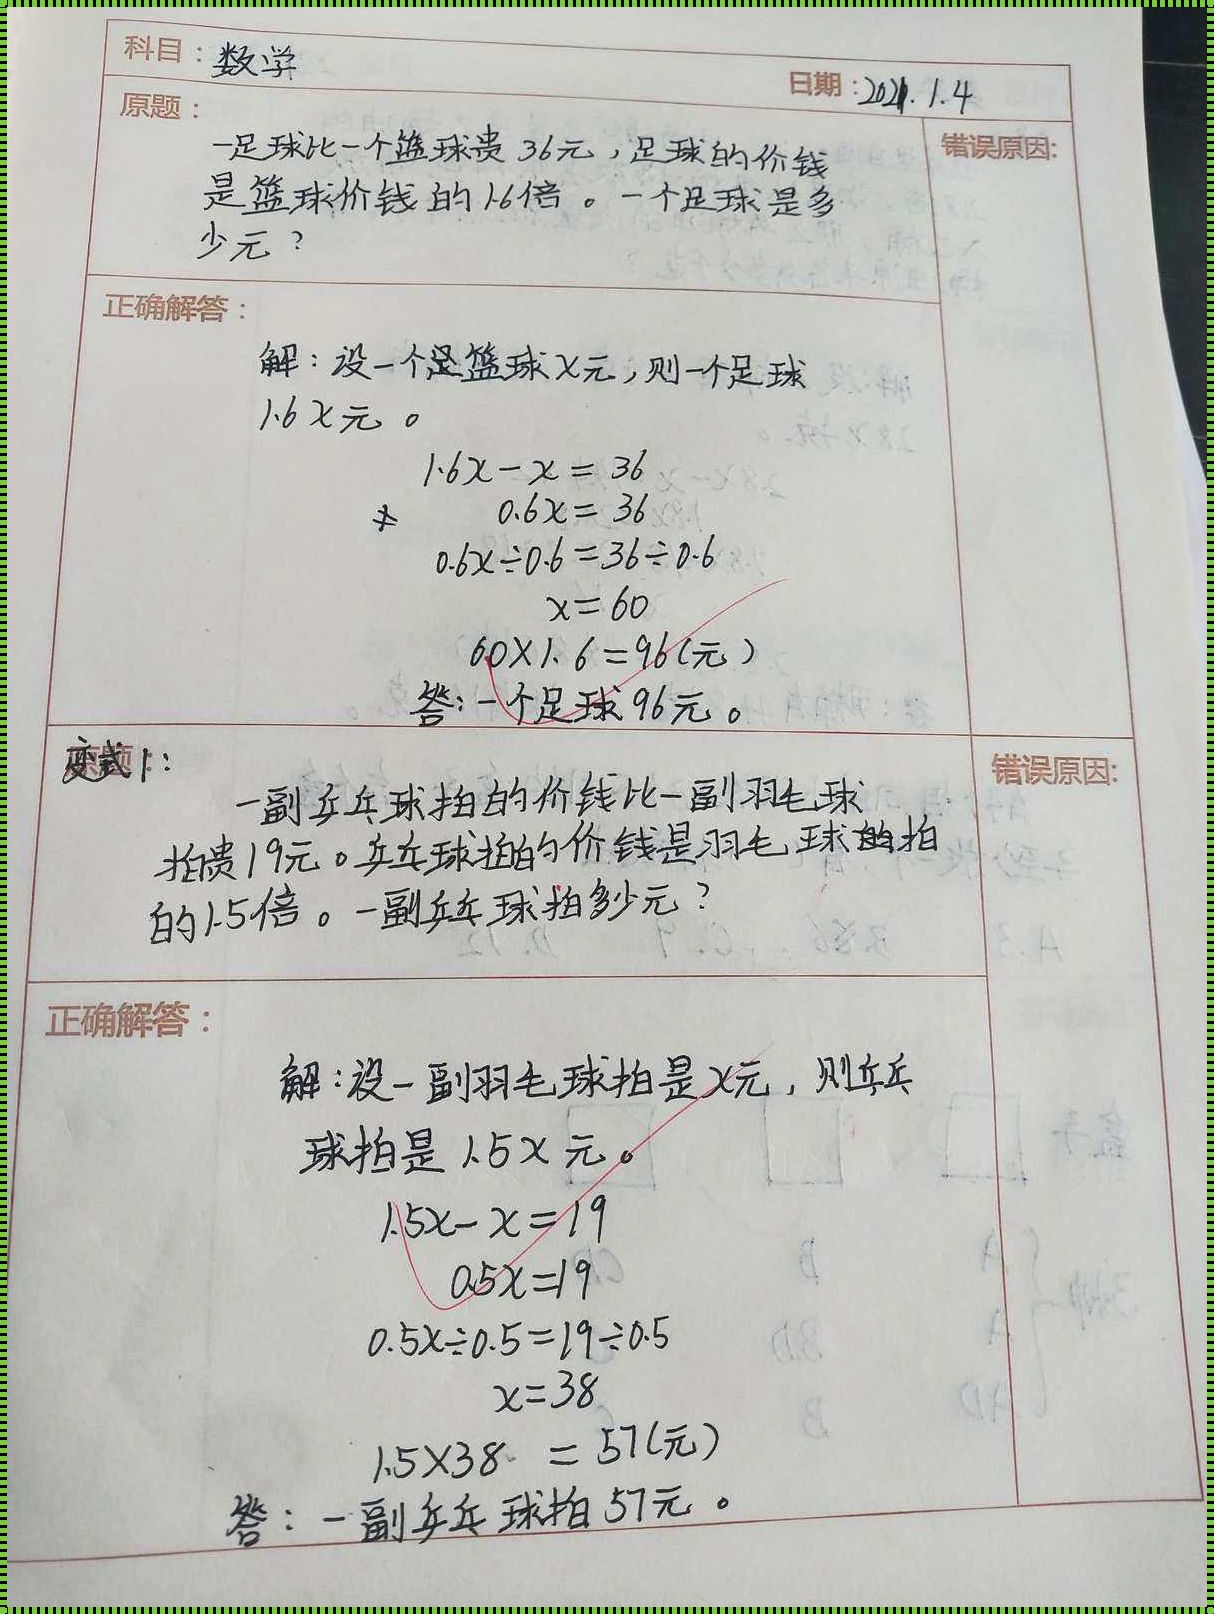 科目：数学
日期：2021.1.4
原题：
错误原因:
一足球比一个篮球贵36元，足球的价钱
是篮球价钱的1.6倍。一个足球是多
少元？
正确解答：
解：设一个篮球x元，则一个足球
1.6x元。
1.6x－x＝36
0.6x＝36
0.6x÷0.6＝36÷0.6
x＝60
60×1.6＝96(元)
答：一个足球96元。
变式1：
错误原因:
一副乒乓球拍的价钱比一副羽毛球
拍贵19元。乒乓球拍的价钱是羽毛球拍
的1.5倍。一副乒乓球拍多少元？
正确解答：
解：设一副羽毛球拍是x元，则乒乓
球拍是1.5x元。
1.5x－x＝19
0.5x＝19
0.5x÷0.5＝19÷0.5
x＝38
1.5×38＝57(元)
答：一副乒乓球拍57元。